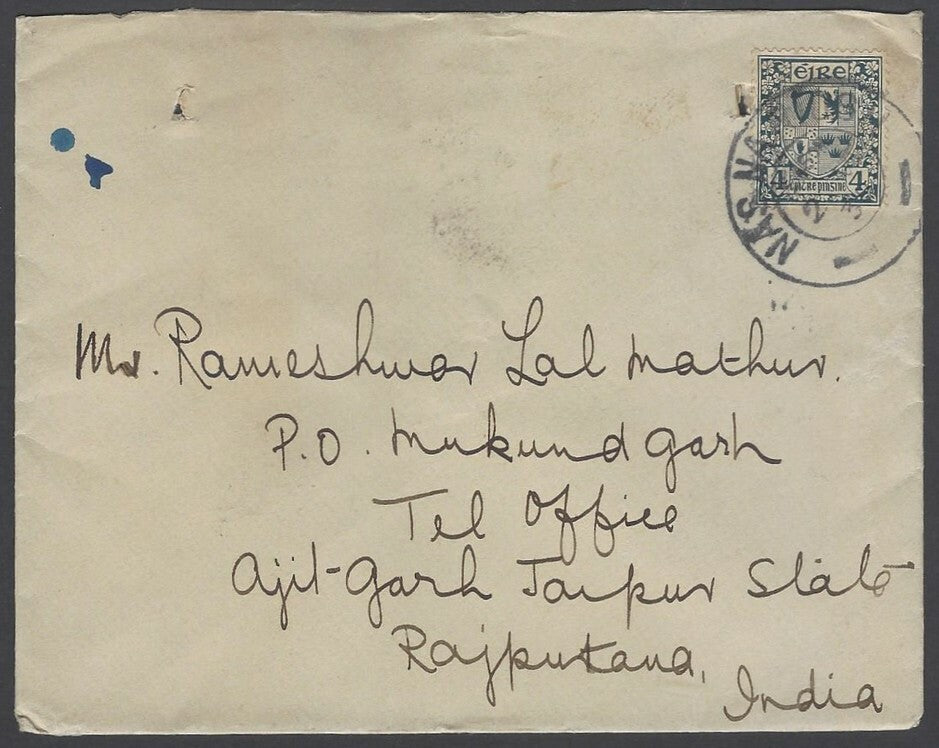 ÉIRE
4 4
NÁS NA
2
Mr. Rameshwar Lal Mathur.
P.O. Mukund Garh
Tel Office
Ajit-Garh Jaipur State
Rajputana,
India